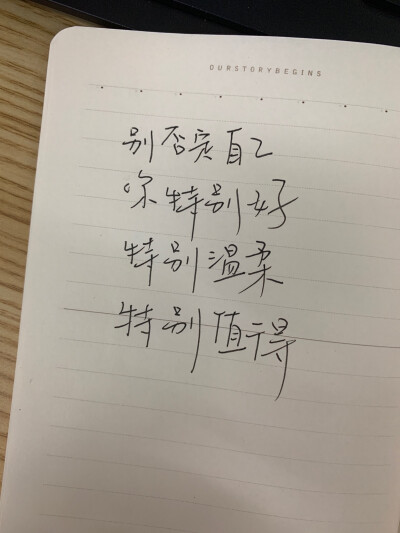 OURSTORYBEGINS
别否定自己
你特别好
特别温柔
特别值得